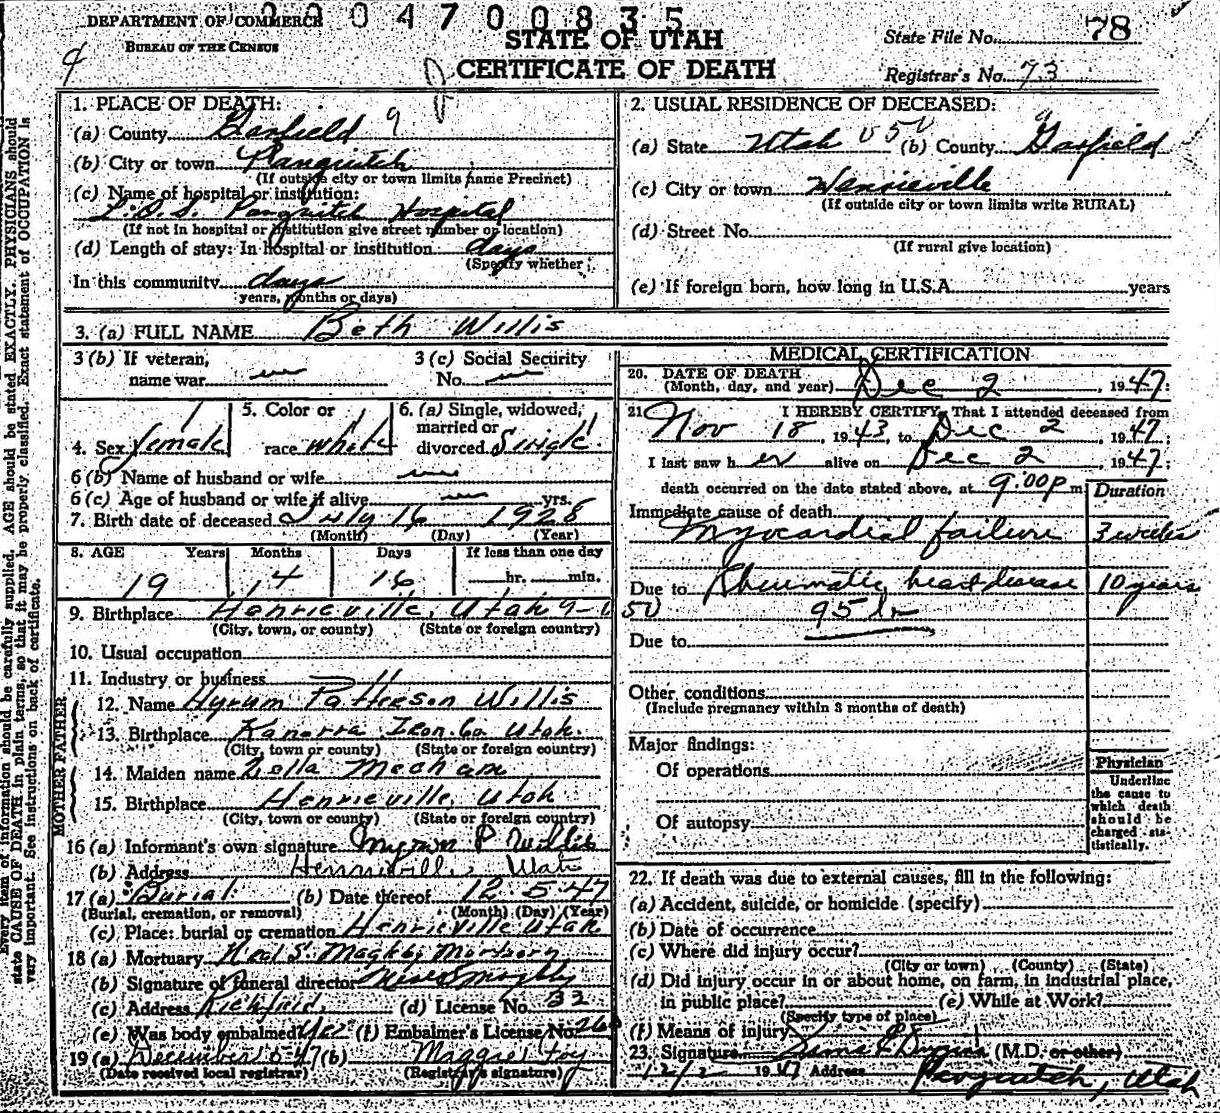 DEPARTMENT OF COMMERCE
BUREAU OF THE CENSUS
004700835
STATE OF UTAH
CERTIFICATE OF DEATH
State File No. 78
Registrar's No. 73
Every item of information should be carefully supplied. AGE should be stated EXACTLY. PHYSICIANS should
state CAUSE OF DEATH in plain terms, so that it may be properly classified. Exact statement of OCCUPATION is
very important. See instructions on back of certificate.
1. PLACE OF DEATH:
(a) County Garfield 9
(b) City or town Panguitch
(If outside city or town limits name Precinct)
(c) Name of hospital or institution:
L.D.S. Panguitch Hospital
(If not in hospital or institution give street number or location)
(d) Length of stay: In hospital or institution days
(Specify whether
In this community days
years, months or days)
2. USUAL RESIDENCE OF DECEASED:
(a) State Utah (b) County Garfield
(c) City or town Henrieville
(If outside city or town limits write RURAL)
(d) Street No.
(If rural give location)
(e) If foreign born, how long in U.S.A. years
3. (a) FULL NAME Beth Willis
3 (b) If veteran,
name war
3 (c) Social Security
No.
4. Sex female
5. Color or
race white
6. (a) Single, widowed,
married or
divorced Single
6 (b) Name of husband or wife
6 (c) Age of husband or wife if alive yrs.
7. Birth date of deceased July 16 1928
(Month) (Day) (Year)
8. AGE Years Months Days If less than one day
19 4 16 hr. min.
9. Birthplace Henrieville, Utah
(City, town, or county) (State or foreign country)
10. Usual occupation
11. Industry or business
FATHER
12. Name Hyrum Patterson Willis
13. Birthplace Kanarra Iron Co Utah.
(City, town or county) (State or foreign country)
MOTHER
14. Maiden name Zella Mecham
15. Birthplace Henrieville, Utah
(City, town or county) (State or foreign country)
16 (a) Informant's own signature P Willis
(b) Address Henrieville, Utah
17 (a) Burial (b) Date thereof 12 5 47
(Burial, cremation, or removal) (Month) (Day) (Year)
(c) Place: burial or cremation Henrieville Utah
18 (a) Mortuary Neal S. Magleby Mortuary
(b) Signature of funeral director Neal S Magleby
(c) Address Richfield, (d) License No. 32
(e) Was body embalmed Yes (f) Embalmer's License No. 260
19 (a) December 5-47 (b) Maggie Foy
(Date received local registrar) (Registrar's signature)
MEDICAL CERTIFICATION
20. DATE OF DEATH
(Month, day, and year) Dec 2, 1947:
21 I HEREBY CERTIFY, That I attended deceased from
Nov 18, 1943, to Dec 2, 1947
I last saw her alive on Dec 2, 1947:
death occurred on the date stated above, at 9:00 p m
Duration
Immediate cause of death
Myocardial failure 3 weeks
Due to Rheumatic heart disease 10 years
95
Due to
Other conditions
(Include pregnancy within 3 months of death)
Major findings:
Of operations
Of autopsy
Physician
Underline
the cause to
which death
should be
charged sta-
tistically.
22. If death was due to external causes, fill in the following:
(a) Accident, suicide, or homicide (specify)
(b) Date of occurrence
(c) Where did injury occur?
(City or town) (County) (State)
(d) Did injury occur in or about home, on farm, in industrial place,
in public place? (e) While at Work?
(Specify type of place)
(f) Means of injury
23. Signature (M.D. or other)
12/2 1947 Address Panguitch, Utah